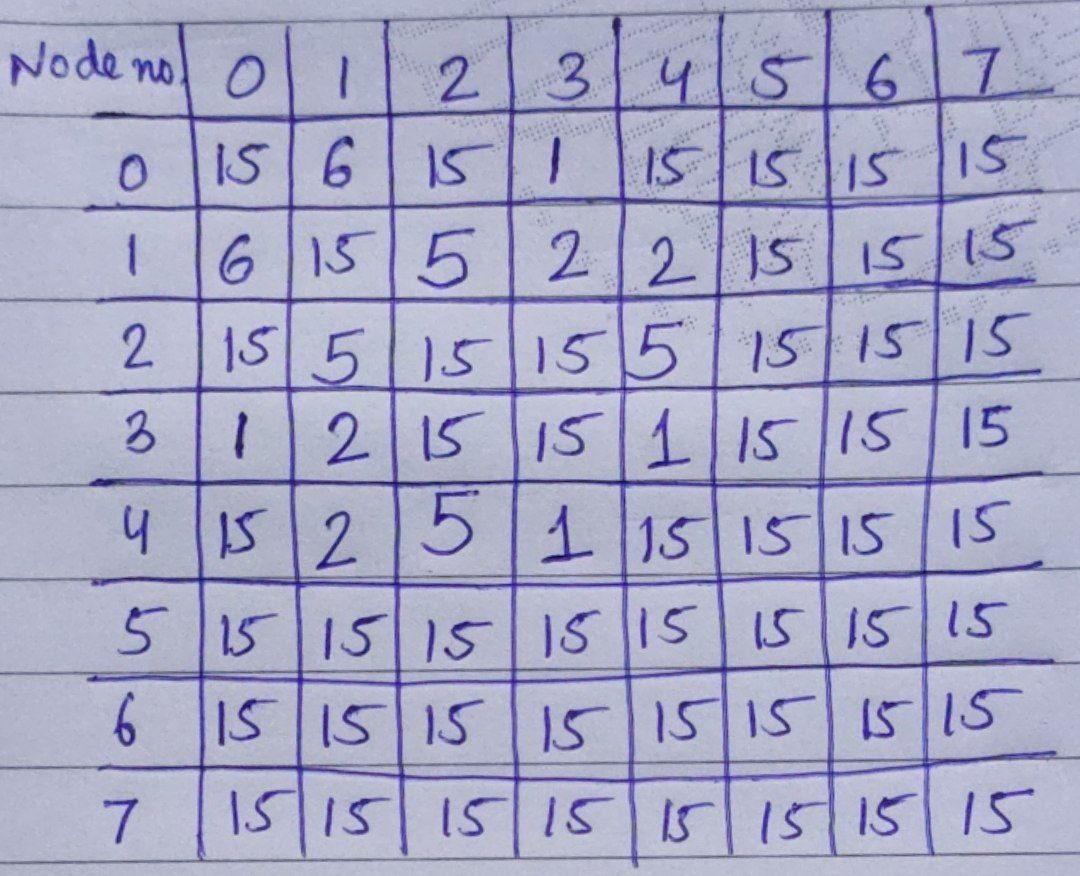 Node no. 0 1 2 3 4 5 6 7
0 15 6 15 1 15 15 15 15
1 6 15 5 2 2 15 15 15
2 15 5 15 15 5 15 15 15
3 1 2 15 15 1 15 15 15
4 15 2 5 1 15 15 15 15
5 15 15 15 15 15 15 15 15
6 15 15 15 15 15 15 15 15
7 15 15 15 15 15 15 15 15